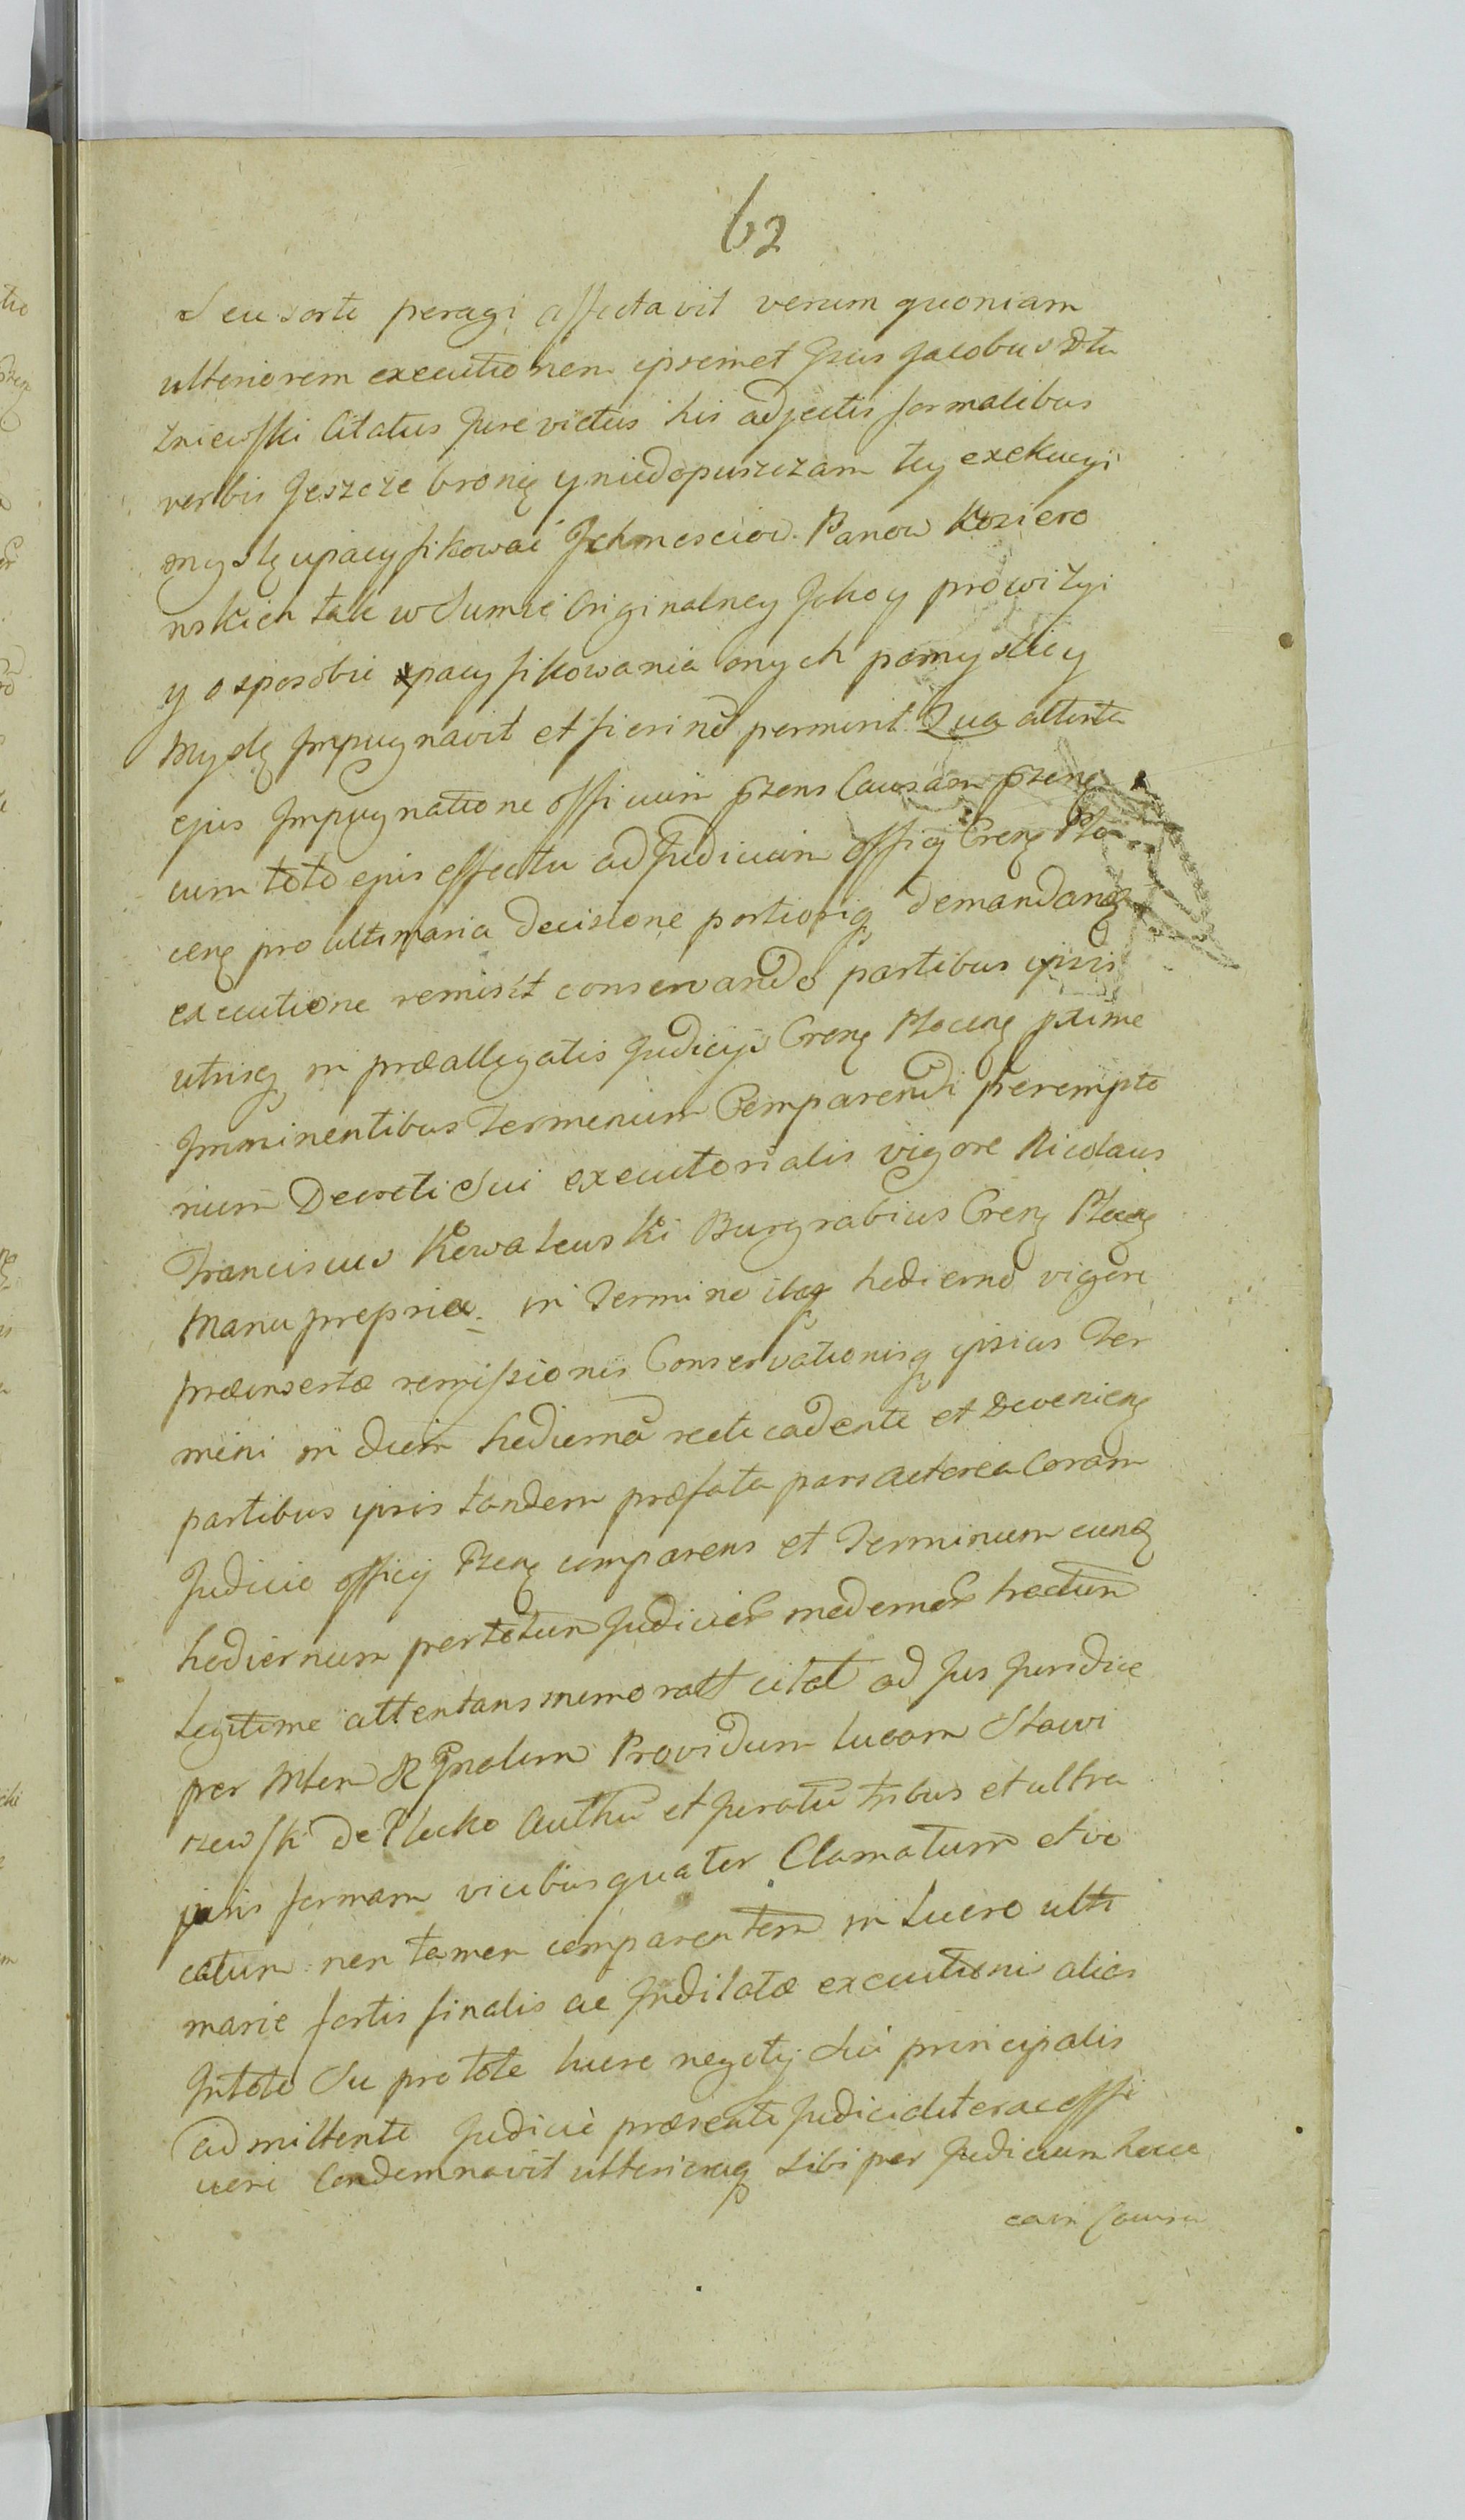 62
Seu sorte peragi affectavit verum quoniam
ulteriorem executionem ipsemet Gsus Jacobus Dłu
zniewski Citatus Jure victus his adjectis formalibus
verbis Jeszcze bronię y niedopuszczam tey exekucyi
myslę upacyfikować Jchmosciow Panow Koziero
wskich tak w Sumie Originalney Jako y prowizyi
y o sposobie pacyfikowania onych pomyslic y
Myslę Impugnavit et fieri nō permisit Qua attenta
ejus Impugnatione officium pzens Causam pzeng
cum toto ejus effectu ad Judicium officij Creng Plo
ceng pro ultimaria decisione portioriq demandang
executione remisit conservando partibus ipsis
utrisq in præallegatis Judicijs Creng Ploceng pxime
Imminentibus Terminum Comparendi perempto
rium Decreti Sui executorialis vigore Nicolaus
Franciscus Kowalewski Burgrabius Creng Ploceng
Manu propria. in Termino itaq hodierno vigore
præinsertæ remissionis Conservationisq ipsius Ter
mini in diem hodiernā recte cadente et Devenieng
partibus ipsis tandem præfata pars actorea Coram
Judicio officij Pzeng comparens et Terminum eung
hodiernum per totum Judicior modernor tractum
Legitime attentans memoratt citat ad Jus Juridice
per Mtem RGnalem Providum Lucam Stawi
szewski de Plocko Authū et Juratū tribus et ultra
juris formam vicibus quater Clamatum et vo
catum non tamen comparentem in Lucro ulti
marie sortis finalis ac Indilatæ executionis alias
In toto Su pro tote lucro negotij Sui principalis
admittente Judicio præsente Judicialiter ac offi
ciose Condemnavit ulteriorq sibi per Judicium hocce
eam Causa